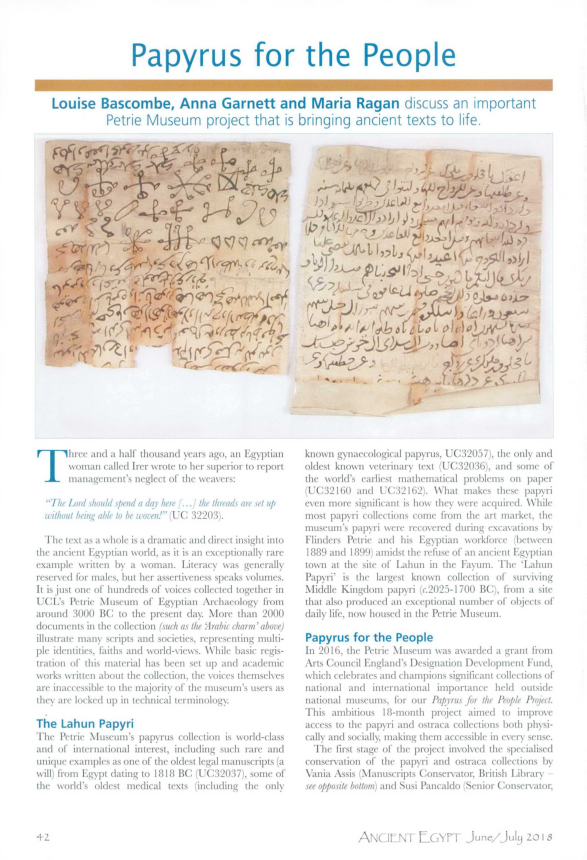 Papyrus for the People
Louise Bascombe, Anna Garnett and Maria Ragan discuss an important
Petrie Museum project that is bringing ancient texts to life.
Three and a half thousand years ago, an Egyptian
woman called Irer wrote to her superior to report
management's neglect of the weavers:
“The Lord should spend a day here [...] the threads are set up
without being able to be woven!” (UC 32203).
The text as a whole is a dramatic and direct insight into
the ancient Egyptian world, as it is an exceptionally rare
example written by a woman. Literacy was generally
reserved for males, but her assertiveness speaks volumes.
It is just one of hundreds of voices collected together in
UCL's Petrie Museum of Egyptian Archaeology from
around 3000 BC to the present day. More than 2000
documents in the collection (such as the ‘Arabic charm’ above)
illustrate many scripts and societies, representing multi-
ple identities, faiths and world-views. While basic regis-
tration of this material has been set up and academic
works written about the collection, the voices themselves
are inaccessible to the majority of the museum's users as
they are locked up in technical terminology.
The Lahun Papyri
The Petrie Museum's papyrus collection is world-class
and of international interest, including such rare and
unique examples as one of the oldest legal manuscripts (a
will) from Egypt dating to 1818 BC (UC32037), some of
the world's oldest medical texts (including the only
known gynaecological papyrus, UC32057), the only and
oldest known veterinary text (UC32036), and some of
the world's earliest mathematical problems on paper
(UC32160 and UC32162). What makes these papyri
even more significant is how they were acquired. While
most papyri collections come from the art market, the
museum's papyri were recovered during excavations by
Flinders Petrie and his Egyptian workforce (between
1889 and 1899) amidst the refuse of an ancient Egyptian
town at the site of Lahun in the Fayum. The ‘Lahun
Papyri’ is the largest known collection of surviving
Middle Kingdom papyri (c.2025-1700 BC), from a site
that also produced an exceptional number of objects of
daily life, now housed in the Petrie Museum.
Papyrus for the People
In 2016, the Petrie Museum was awarded a grant from
Arts Council England's Designation Development Fund,
which celebrates and champions significant collections of
national and international importance held outside
national museums, for our Papyrus for the People Project.
This ambitious 18-month project aimed to improve
access to the papyri and ostraca collections both physi-
cally and socially, making them accessible in every sense.
The first stage of the project involved the specialised
conservation of the papyri and ostraca collections by
Vania Assis (Manuscripts Conservator, British Library –
see opposite bottom) and Susi Pancaldo (Senior Conservator,
42
ANCIENT EGYPT June/July 2018